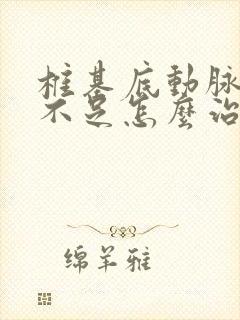 椎基底動脉
不足怎麼治
绵羊雅